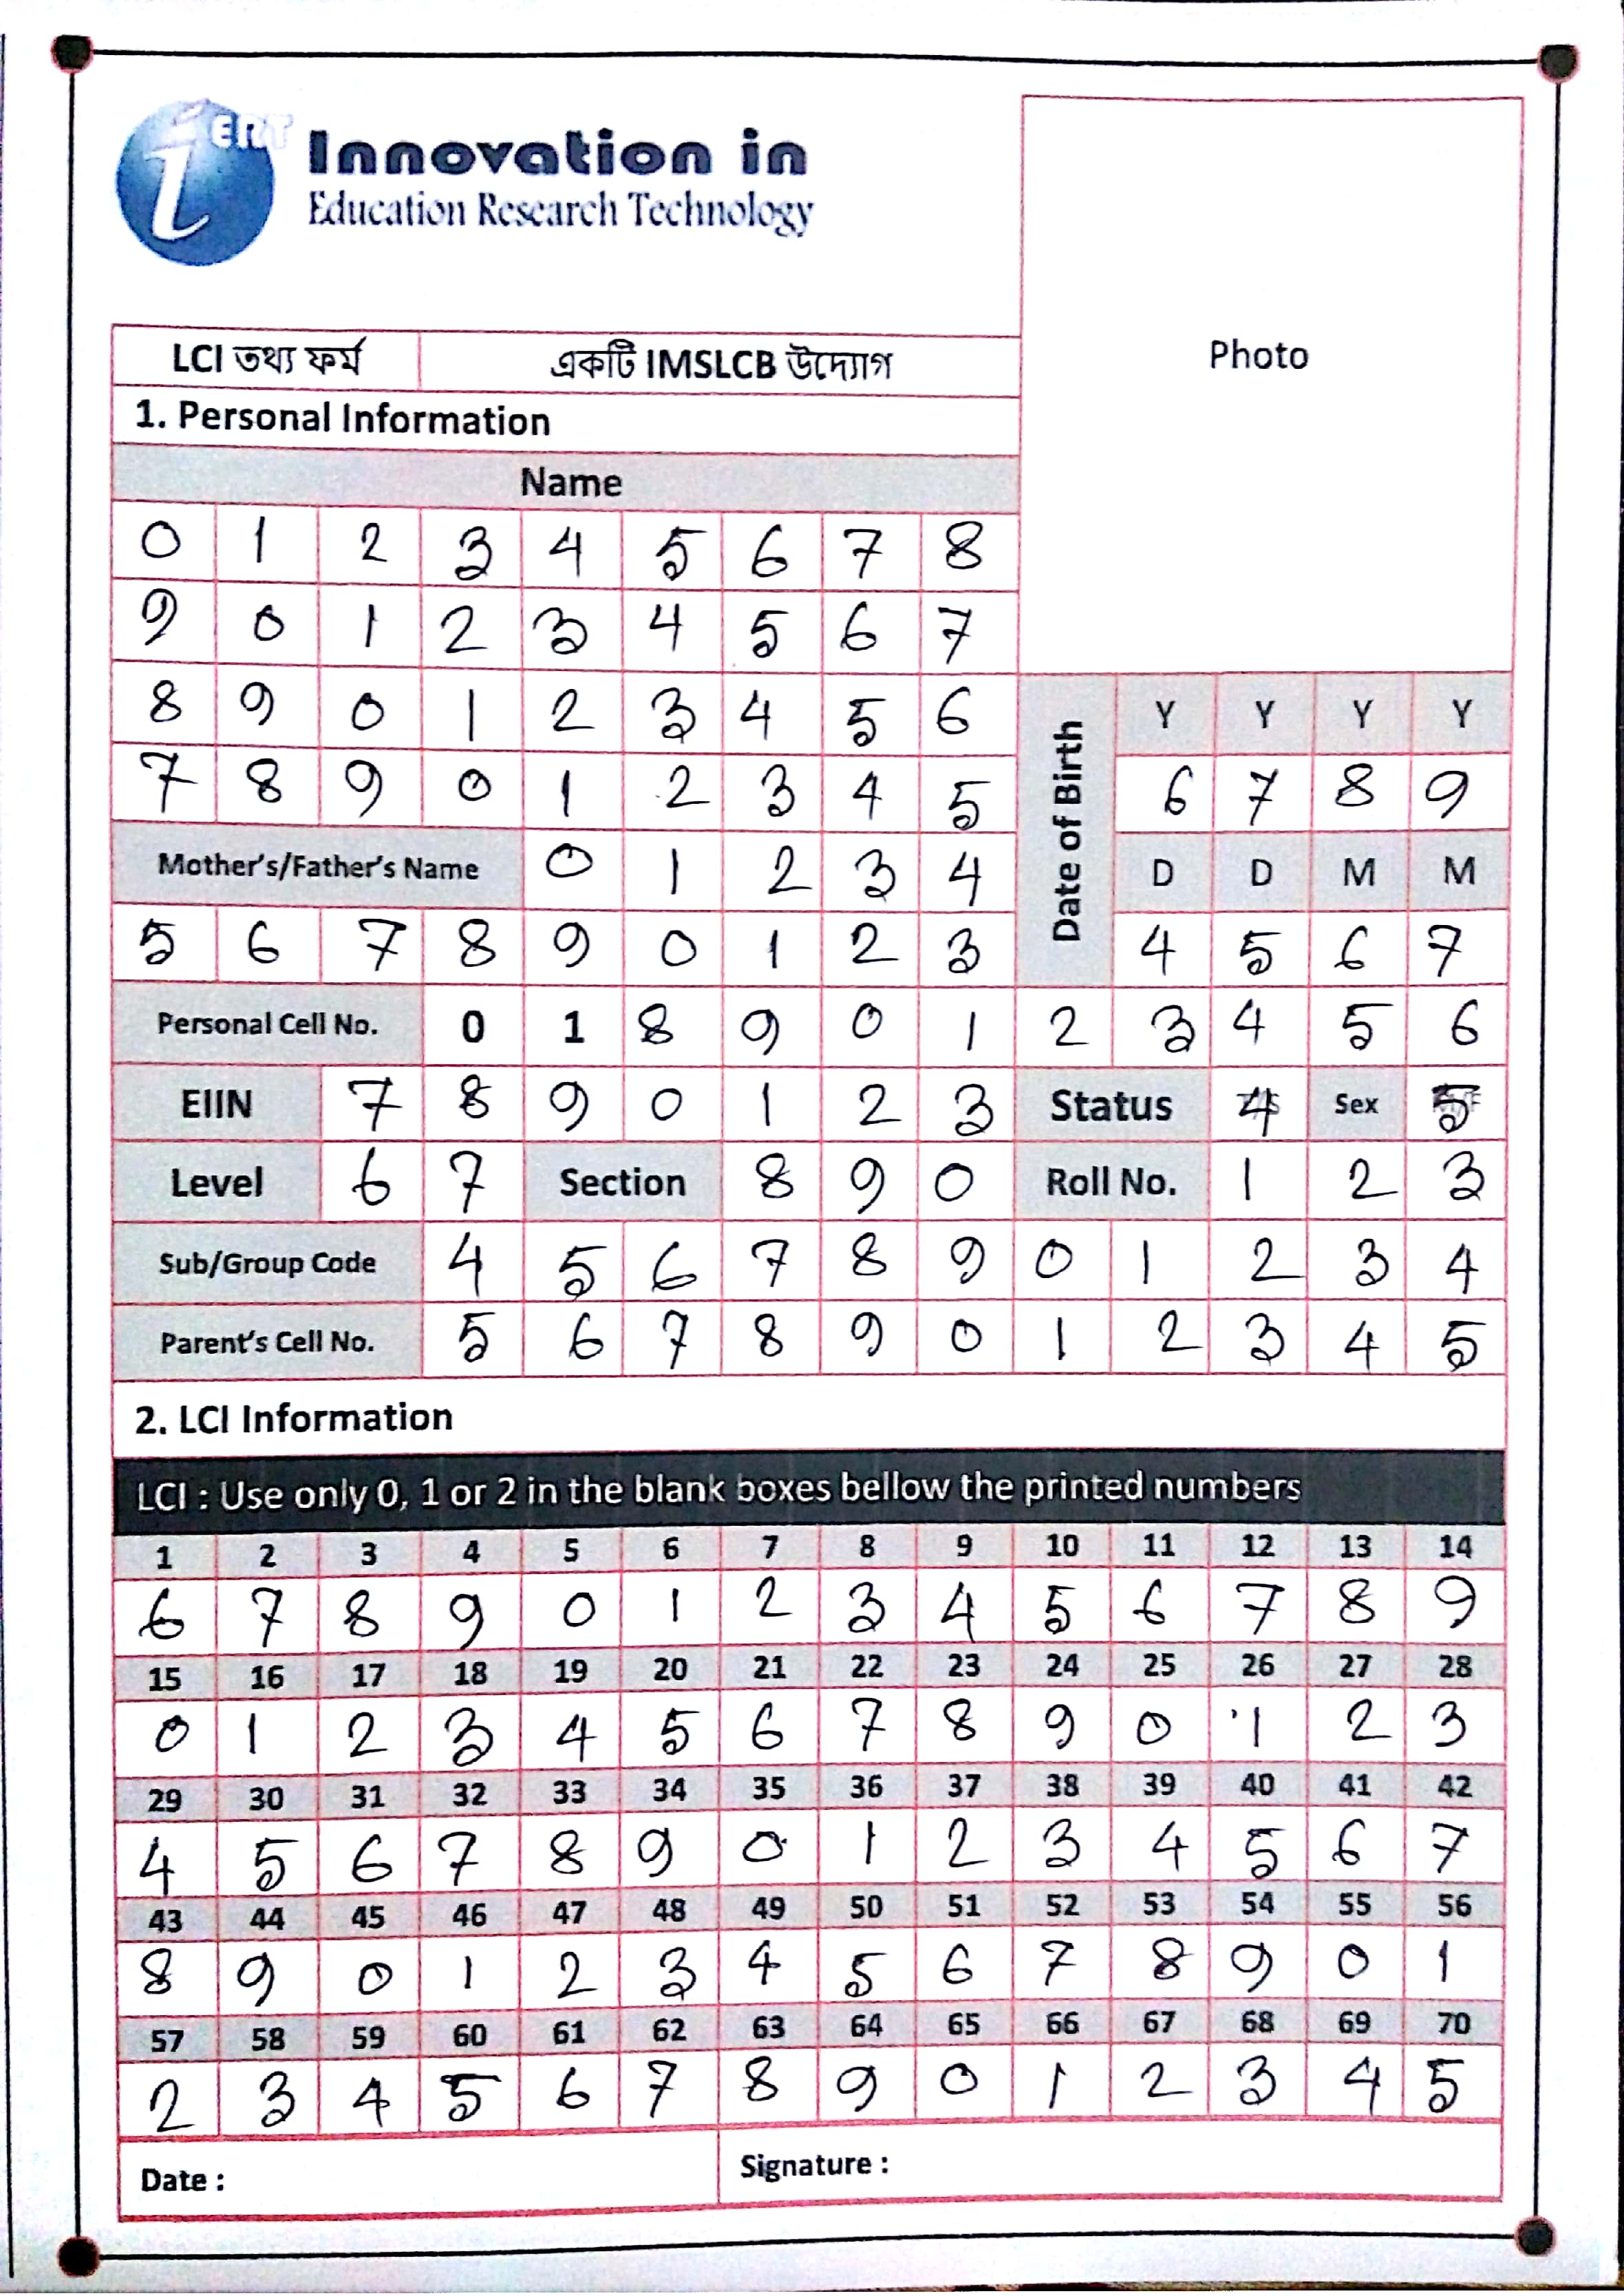 iERT
Innovation in
Education Research Technology
Photo
LCI তথ্য ফর্ম একটি IMSLCB উদ্যোগ
1. Personal Information
Name
0 1 2 3 4 5 6 7 8
9 0 1 2 3 4 5 6 7
8 9 0 1 2 3 4 5 6
Date of Birth Y Y Y Y
7 8 9 0 1 2 3 4 5 6 7 8 9
Mother's/Father's Name 0 1 2 3 4 D D M M
5 6 7 8 9 0 1 2 3 4 5 6 7
Personal Cell No. 0 1 8 9 0 1 2 3 4 5 6
EIIN 7 8 9 0 1 2 3 Status 4 Sex 5
Level 6 7 Section 8 9 0 Roll No. 1 2 3
Sub/Group Code 4 5 6 7 8 9 0 1 2 3 4
Parent's Cell No. 5 6 7 8 9 0 1 2 3 4 5
2. LCI Information
LCI : Use only 0, 1 or 2 in the blank boxes bellow the printed numbers
1 2 3 4 5 6 7 8 9 10 11 12 13 14
6 7 8 9 0 1 2 3 4 5 6 7 8 9
15 16 17 18 19 20 21 22 23 24 25 26 27 28
0 1 2 3 4 5 6 7 8 9 0 1 2 3
29 30 31 32 33 34 35 36 37 38 39 40 41 42
4 5 6 7 8 9 0 1 2 3 4 5 6 7
43 44 45 46 47 48 49 50 51 52 53 54 55 56
8 9 0 1 2 3 4 5 6 7 8 9 0 1
57 58 59 60 61 62 63 64 65 66 67 68 69 70
2 3 4 5 6 7 8 9 0 1 2 3 4 5
Date : Signature :